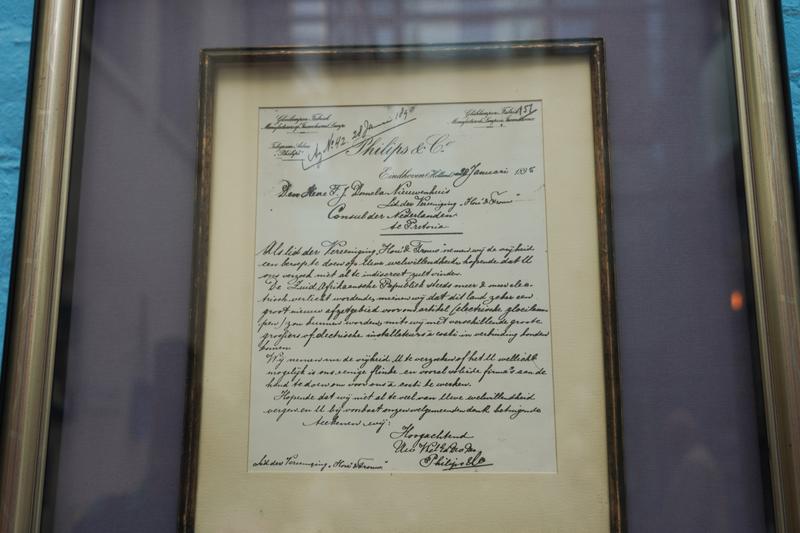 Gloeilampen Fabriek
Manufacturers of Incandescent Lamps
Glühlampen Fabrik
Telegram Adres
"Philips"
Ag No 42 28 Januari 189
Philips & Co
Eindhoven (Holland) Januari 189
Den Heer F. J. Domela Nieuwenhuis
Lid der Vereeniging "Hou & Trouw"
Consul der Nederlanden
te Pretoria
Als lid der Vereeniging "Hou & Trouw" nemen wij de vrijheid
een beroep te doen op Uwe welwillendheid, hopende dat U
ons verzoek niet al te indiscreet zult vinden.
De Zuid Afrikaansche Republiek steeds meer & meer elec-
trisch verlicht wordende, meenen wij dat dit land zeker een
groot nieuw afzetgebied voor ons artikel (electrische gloeilam-
pen) zou kunnen worden, mits wij met verschillende groote
grossiers of electrische installateurs à costi in verbinding konden
komen.
Wij nemen nu de vrijheid U te verzoeken of het U wellicht
mogelijk is ons eenige flinke en vooral solide firma's aan de
hand te doen om voor ons à costi te werken.
Hopende dat wij niet al te veel van Uwe welwillendheid
vergen en U bij voorbaat onzen welgemeenden dank betuigende
teekenen wij:
Hoogachtend
Uwe
Philips & Co
Lid der Vereeniging "Hou & Trouw"